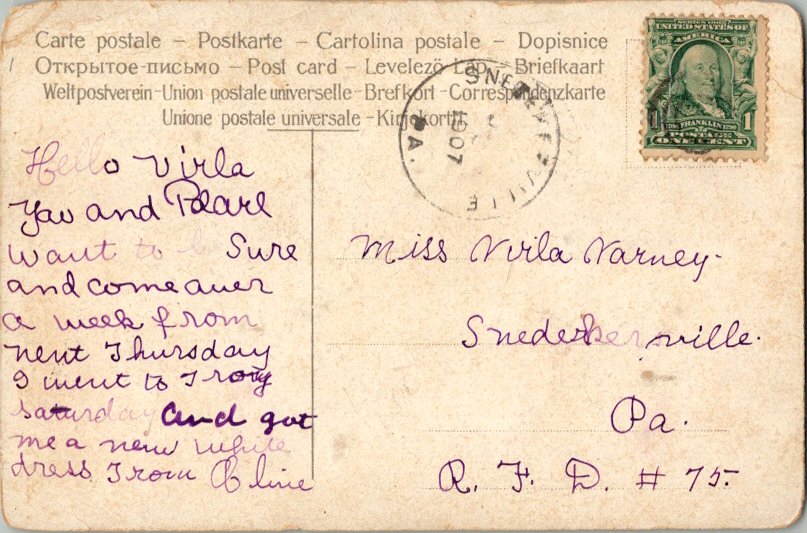 Carte postale – Postkarte – Cartolina postale – Dopisnice
Открытое-письмо – Post card – Levelező Lap – Briefkaart
Weltpostverein-Union postale universelle-Brefkort-Correspondenzkarte
Unione postale universale-Kirjekortti
SERIES 1902
UNITED STATES OF
AMERICA
FRANKLIN
POSTAGE
1 ONE CENT 1
SNEDEKERVILLE
1907
PA.
Hello Virla
You and Pearl
want to be Sure
and come aver
a week from
next Thursday
I went to Troy
saturday and got
me a new white
dress from Cline
Miss Virla Varney.
Snedekersville.
Pa.
R. F. D. # 75.